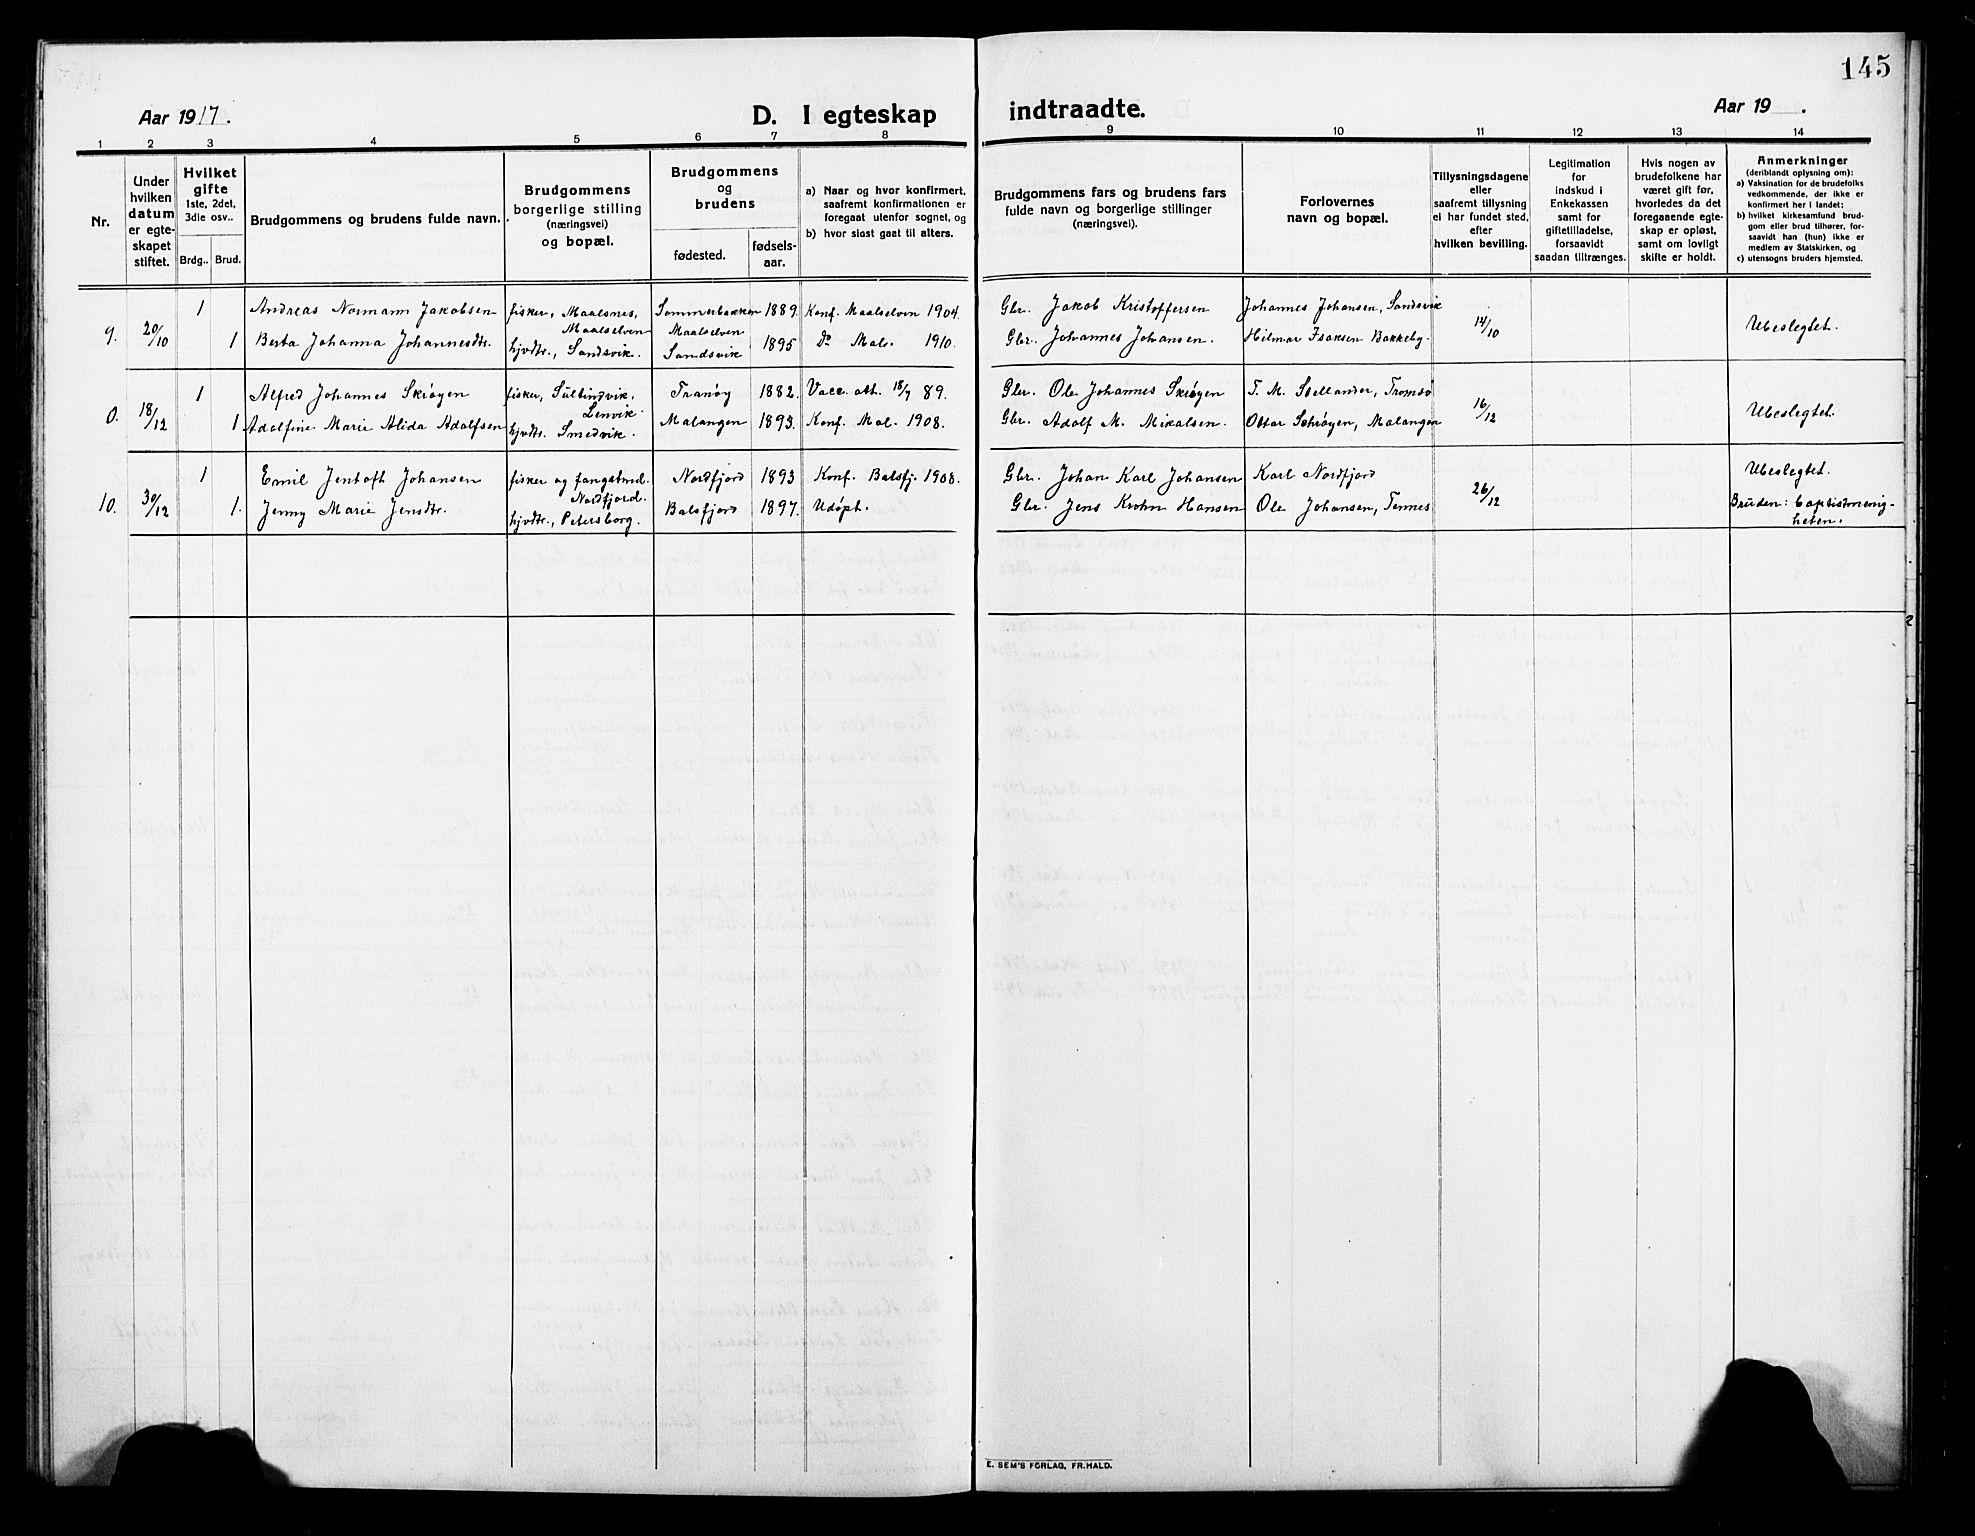 145
Aar 1917.
D. I egteskap indtraadte.
Aar 19 .
1 2 3 4 5 6 7 8 9 10 11 12 13 14
Nr.
Under
hvilken
datum
er egte-
skapet
stiftet.
Hvilket
gifte
1ste, 2det,
3die osv..
Brdg.. Brud.
Brudgommens og brudens fulde navn.
Brudgommens
borgerlige stilling
(næringsvei)
og bopæl.
Brudgommens
og
brudens
fødested.
fødsels-
aar.
a) Naar og hvor konfirmert,
saafremt konfirmationen er
foregaat utenfor sognet, og
b) hvor sidst gaat til alters.
Brudgommens fars og brudens fars
fulde navn og borgerlige stillinger
(næringsvei).
Forlovernes
navn og bopæl.
Tillysningsdagene
eller
saafremt tillysning
ei har fundet sted,
efter
hvilken bevilling.
Legitimation
for
indskud i
Enkekassen
samt for
giftetilladelse,
forsaavidt
saadan tiltrænges.
Hvis nogen av
brudefolkene har
været gift før,
hvorledes da det
foregaaende egte-
skap er opløst,
samt om lovligt
skifte er holdt.
Anmerkninger
(deriblandt oplysning om):
a) Vaksination for de brudefolks
vedkommende, der ikke er
konfirmert her i landet;
b) hvilket kirkesamfund brud-
gom eller brud tilhører, for-
saavidt han (hun) ikke er
medlem av Statskirken, og
c) utensogns bruders hjemsted.
9. 20/10
1 Andreas Normann Jakobsen fisker, Maalsnes, Maalselven Sommerbakken Maalselven 1889. Konf. Maalselven 1904. Gbr. Jakob Kristoffersen Johannes Johansen, Sandsvik 14/10 Ubeslegtet.
1 Berta Johanna Johannesdtr. hjvdtr., Sandsvik. Sandsvik 1895 Do Mal. 1910. Gbr. Johannes Johansen. Hilmar Isaksen Bakkeby.
0. 18/12
1 Alfred Johannes Skrøyen fisker, Sultindvik, Lenvik. Tranøy 1882. Vacc. att. 18/9 89. Gbr. Ole Johannes Skrøyen T. M. Stellander, Tromsø 16/12 Ubeslegtet.
1 Adolfine Marie Alida Adolfsen hjvdtr. Smedvik. Malangen 1893. Konf. Mal. 1908. Gbr. Adolf M. Mikalsen. Ottar Schrøyen, Malangen
10. 30/12
1 Emil Jentoft Johansen fisker og fangstmd. Nordfjord. Nordfjord 1893 Konf. Balsfj. 1908. Gbr. Johan Karl Johansen Karl Nordfjord 26/12 Ubeslegtet.
1. Jenny Marie Jensdtr. hjvdtr., Petersborg. Balsfjord 1897. Udøpt. Gbr. Jens Krohn Hansen Ole Johansen, Tennes Bruden: baptistmenig-
heten.
E. SEM'S FORLAG, FR.HALD.